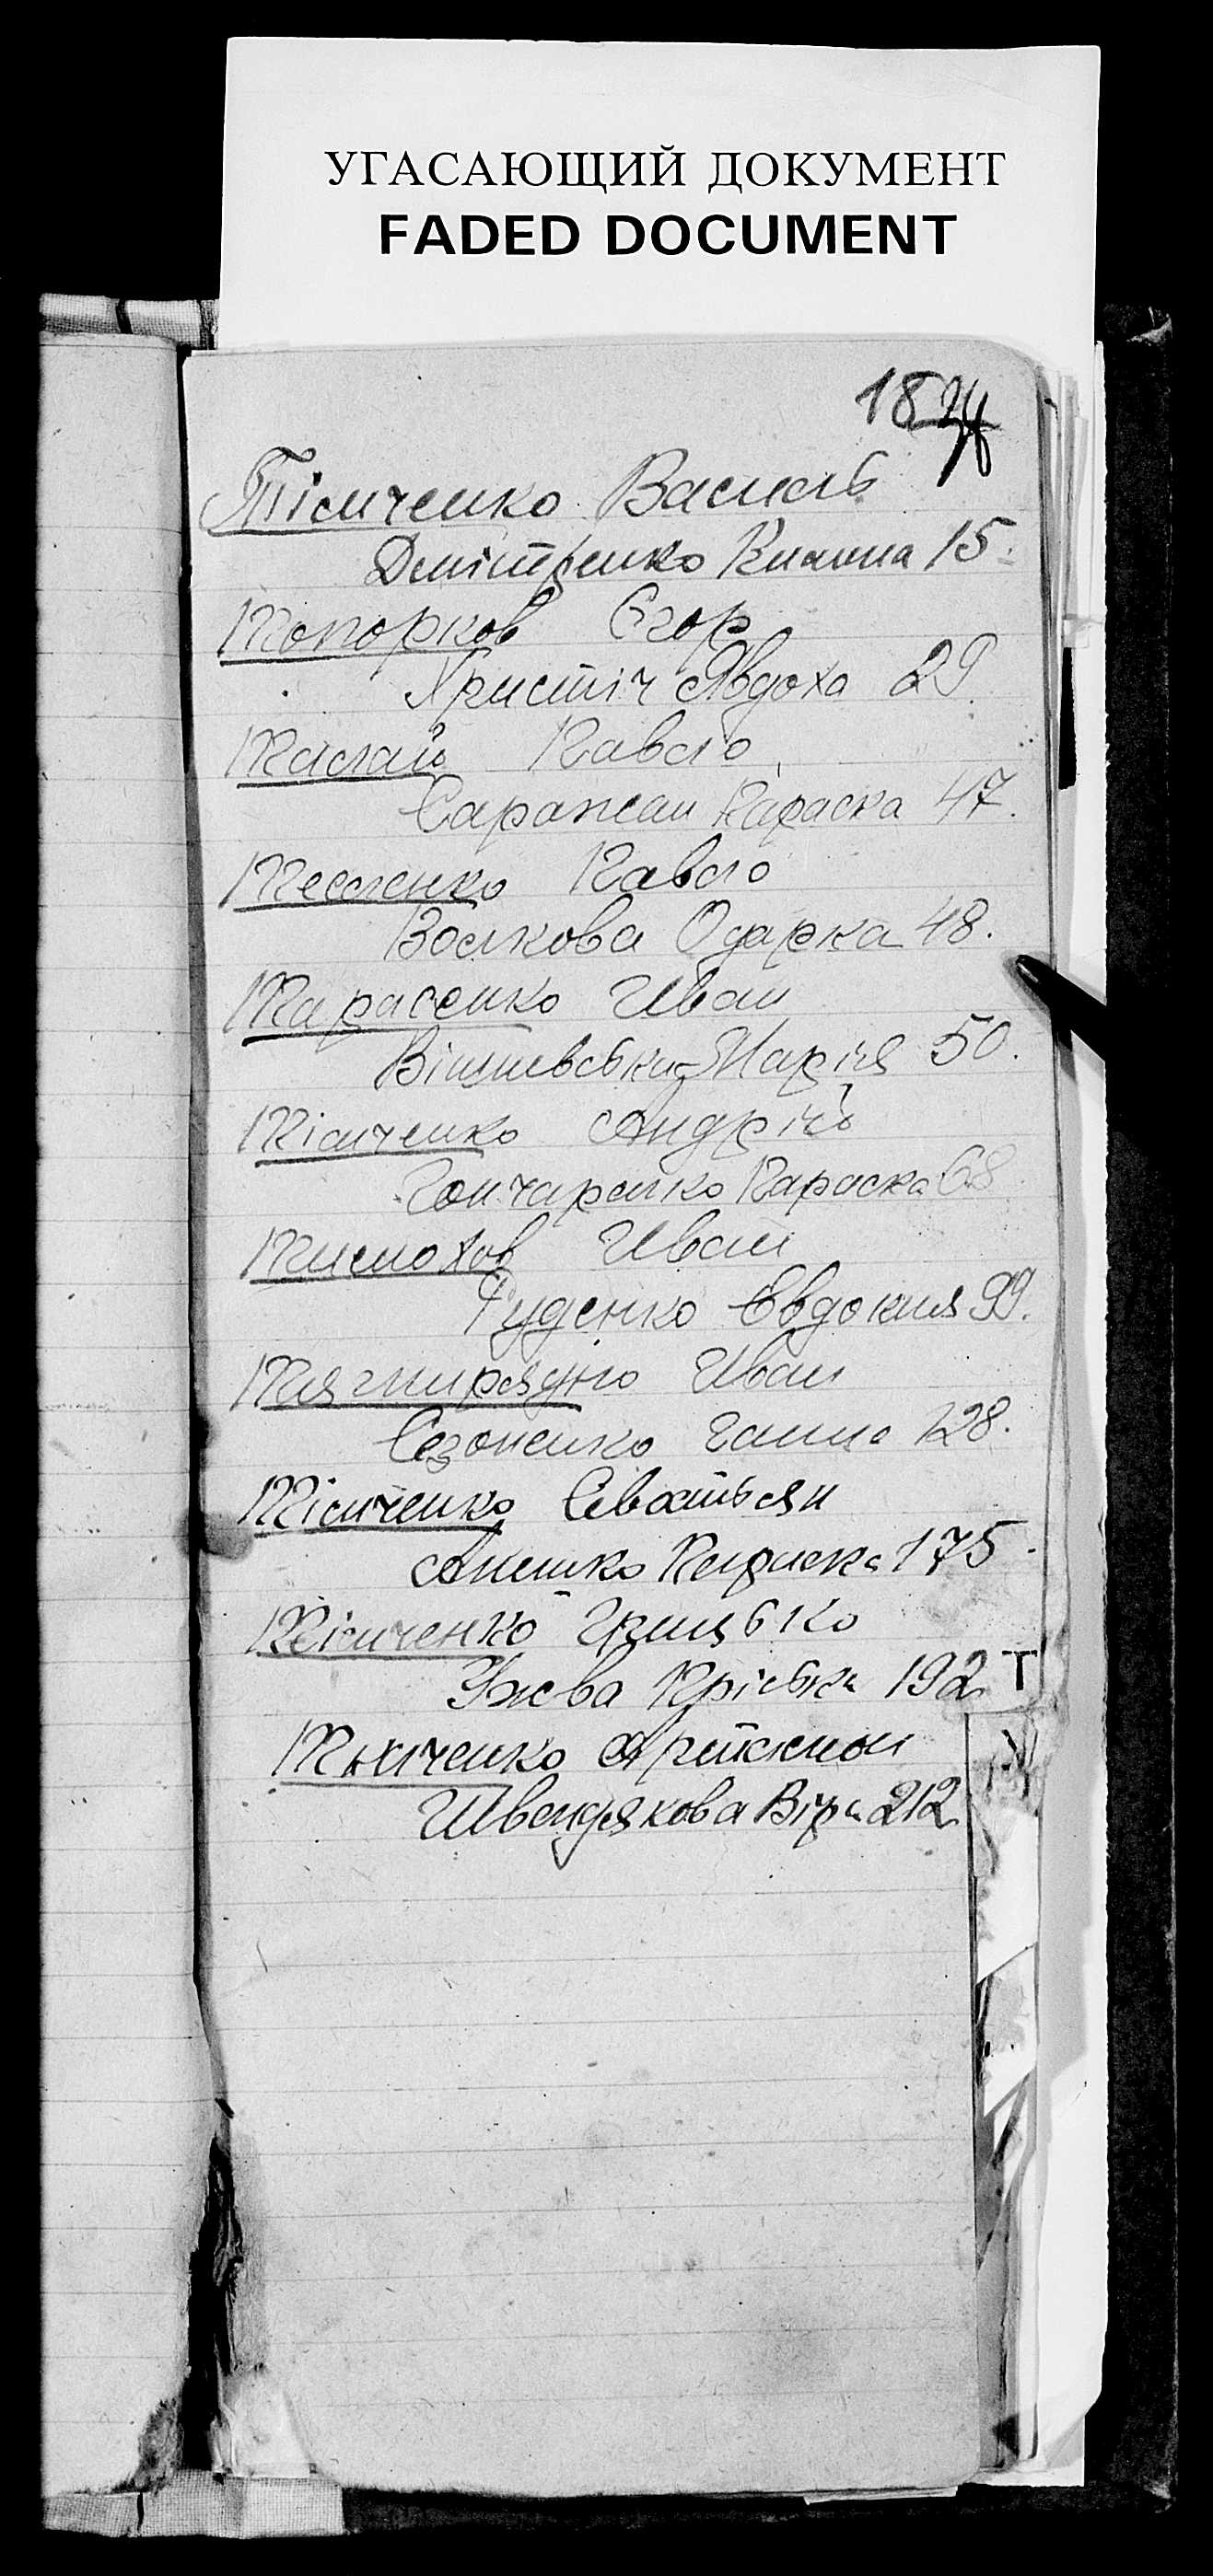 УГАСАЮЩИЙ ДОКУМЕНТ
FADED DOCUMENT
18
Тімченко Василь
Дмітренко 15.
Топорков Єгор
Христіч Явдоха 29
Талай Павло
Саражан Параска 47.
Тесленко Павло
Волкова Одарка 48.
Тарасенко Иван
Вішневська Марія 50.
Тімченко Андрій
Гончаренко Параска 68
Тимохов Иван
Руденко Євдокия 99.
Тягнирядно Иван
Сезоненко Ганна 128.
Тімченко Севастьян
Параска 175
Тімченко Грицько
Пріська 192
Т
Тімченко Артимон
Швендякова Віра 212